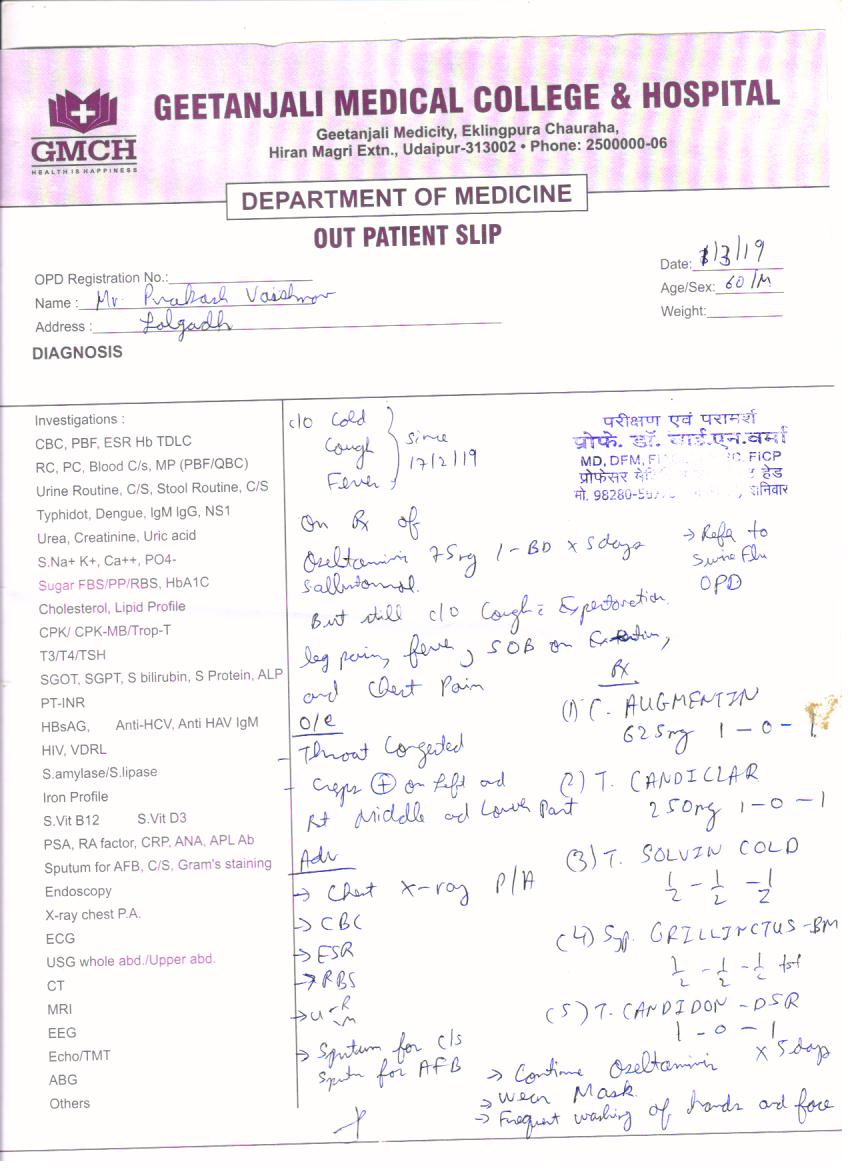 GMCH
HEALTH IS HAPPINESS
GEETANJALI MEDICAL COLLEGE & HOSPITAL
Geetanjali Medicity, Eklingpura Chauraha,
Hiran Magri Extn., Udaipur-313002 • Phone: 2500000-06
DEPARTMENT OF MEDICINE
OUT PATIENT SLIP
OPD Registration No.:
Date: /3/19
Name : Mr. Prakash Vaishnav
Age/Sex: 60/M
Address : Lalgadh
Weight:
DIAGNOSIS
Investigations :
CBC, PBF, ESR Hb TDLC
RC, PC, Blood C/s, MP (PBF/QBC)
Urine Routine, C/S, Stool Routine, C/S
Typhidot, Dengue, IgM IgG, NS1
Urea, Creatinine, Uric acid
S.Na+ K+, Ca++, PO4-
Sugar FBS/PP/RBS, HbA1C
Cholesterol, Lipid Profile
CPK/ CPK-MB/Trop-T
T3/T4/TSH
SGOT, SGPT, S bilirubin, S Protein, ALP
PT-INR
HBsAG, Anti-HCV, Anti HAV IgM
HIV, VDRL
S.amylase/S.lipase
Iron Profile
S.Vit B12 S.Vit D3
PSA, RA factor, CRP, ANA, APL Ab
Sputum for AFB, C/S, Gram's staining
Endoscopy
X-ray chest P.A.
ECG
USG whole abd./Upper abd.
CT
MRI
EEG
Echo/TMT
ABG
Others
c/o Cold
Cough
Fever
Since
17/2/19
परीक्षण एवं परामर्श
प्रोफे. डॉ. वाई.एन.वर्मा
MD, DFM, FICP
प्रोफेसर हेड
मो. 98280- शनिवार
On Rx of
Oseltamivir 75mg 1-BD x 5days
Salbutomol.
→ Refer to
Swine Flu
OPD
But still c/o Cough c̄ Expectoration
leg pain, fever, SOB on
and Chest Pain
O/E
- Throat Congested
- Creps (+) on Left and
Rt Middle and Lower Part
Adv
→ Chest X-ray P/A
→ CBC
→ ESR
→ RBS
→ U - R
m
→ Sputum for C/s
Sputum for AFB
Rx
(1) C. AUGMENTIN
625mg 1 - 0 - 1
(2) T. CANDICLAR
250mg 1-0-1
(3) T. SOLVIN COLD
1/2 - 1/2 - 1/2
(4) Syp. GRILLINCTUS-BM
1/2 - 1/2 - 1/2 tsf
(5) T. CANDIDON-DSR
1 - 0 - 1
x 5days
→ Continue Oseltamivir
→ Wear Mask.
→ Frequent washing of hands and face